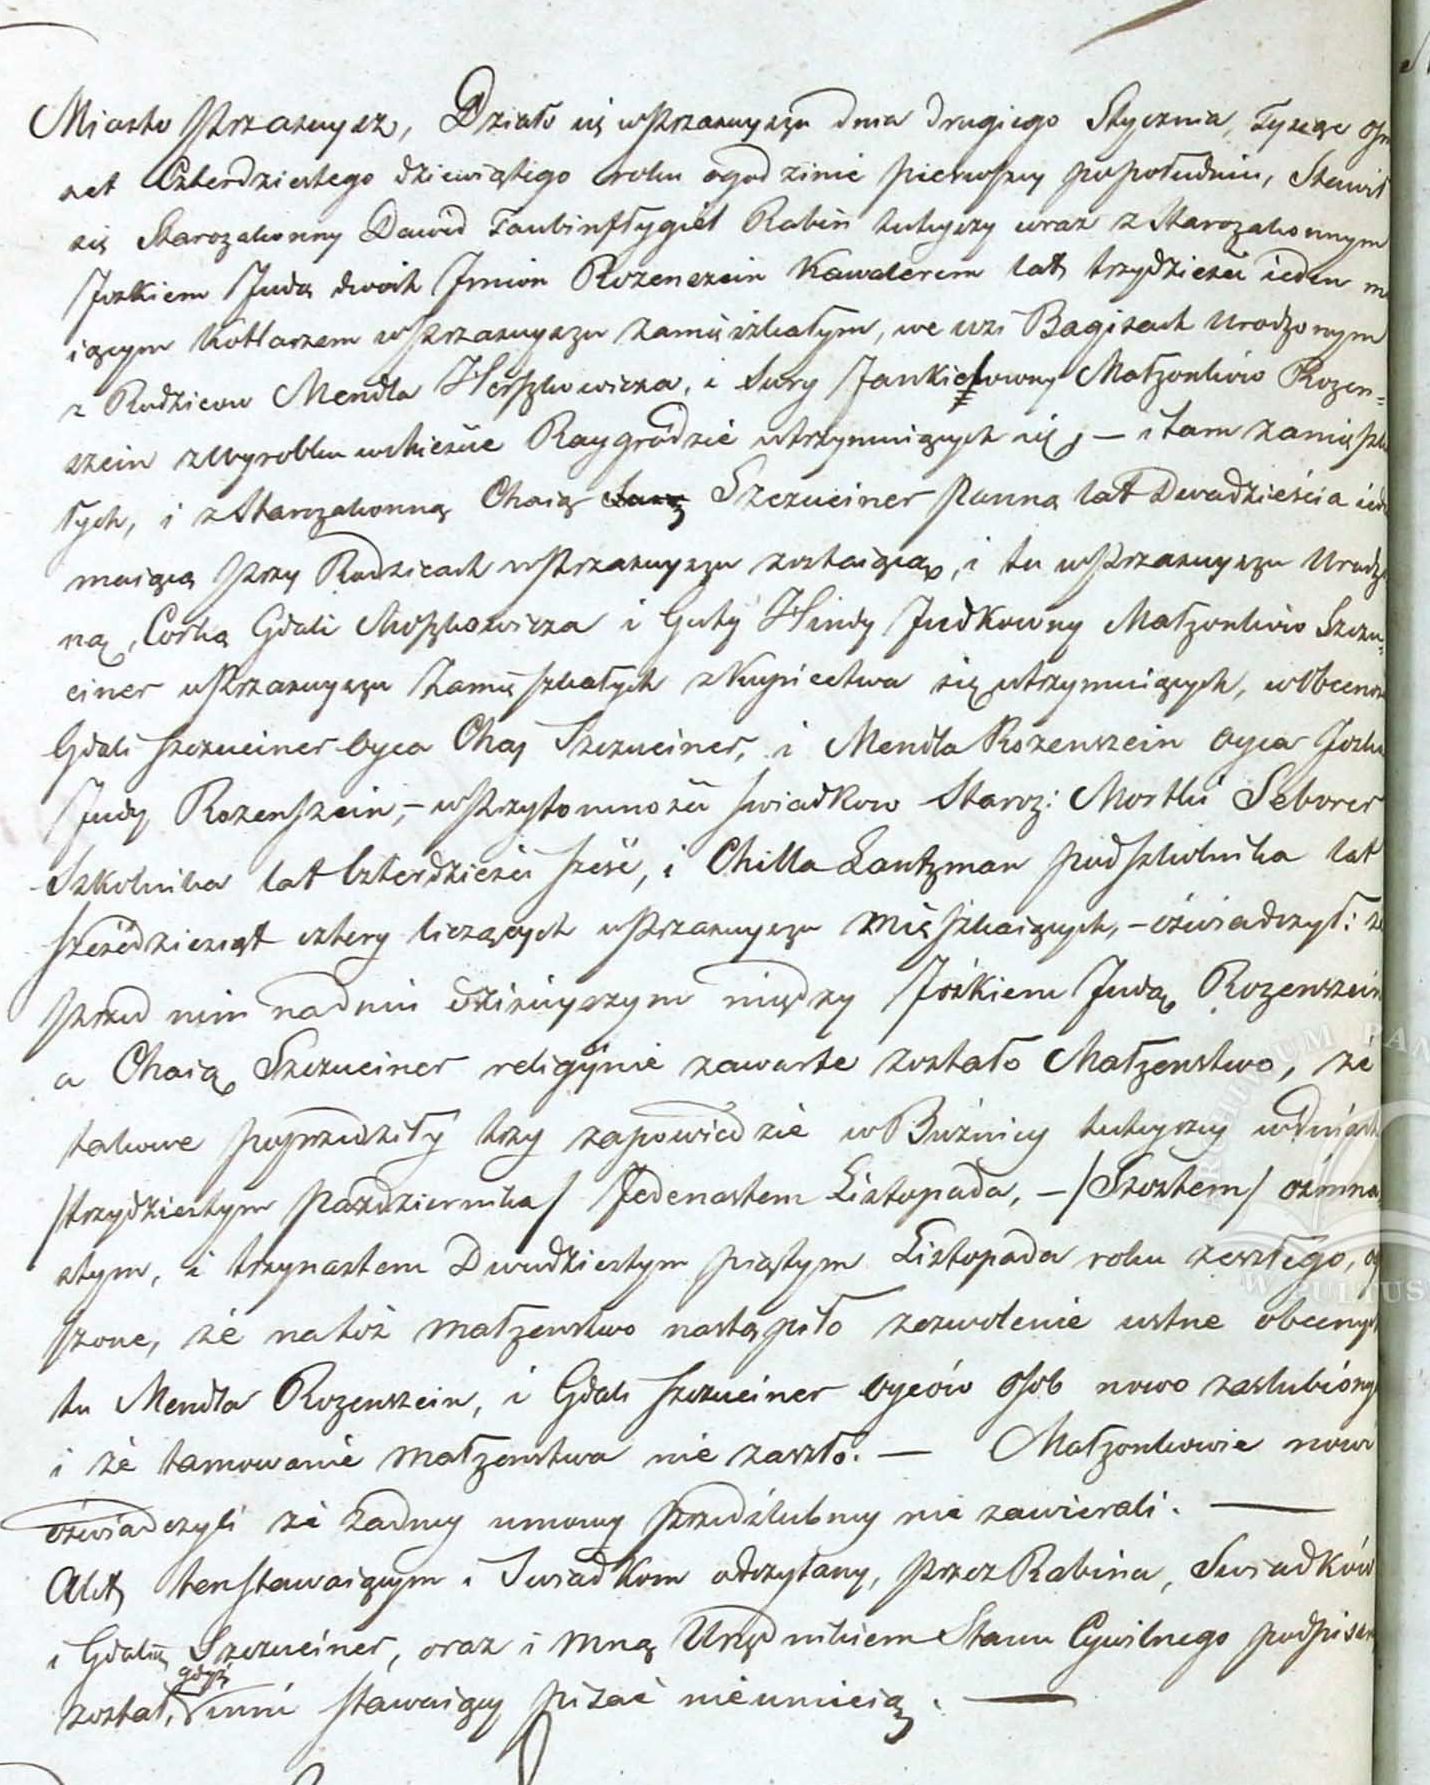 Miasto Przasnysz, Działo się w Przasnyszu dnia drugiego Stycznia, Tysiąc Ośm
set Czterdziestego dziewiątego roku o godzinie pierwszey po południu, Stawił
się Starozakonny Dawid Taubinfłygiel Rabin tuteyszy wraz z Starozakonnym
Joskiem Judą dwoch Jmion Rozenszein Kawalerem lat trzydzieści ieden ma
iącym Kotlarzem w Przasnyszu zamieszkałym, we wsi Bagisach urodzonym
z Rodzicow Mendla Herszkowicza, i Sury Jankielowny Małzonków Rozen=
szein z wyrobku w mieście Raygrodzie utrzymuiących się, – i tam zamieszka
łych, i z Starozakonną Chaią Szczuciner Panną lat Dwadzieścia ieden
maiącą przy Rodzicach w Przasnyszu zostaiącą, i tu w Przasnyszu Urodzo
ną, Corką Gdali Moszkowicza i Guty Hindy Judkowny Małzonków Szczu=
ciner w Przasnyszu Zamieszkałych z Kupiectwa się utrzymuiących, w Obecnosci
Gdali Szczuciner Oyca Chai Szczuciner, i Mendla Rozenszein Oyca Joska
Judy Rozenszein, – w Przytomności Swiadkow Staroz: Mortki Seborer
Szkolnika lat Czterdzieści sześć, i Chilla Lantzman podszkolnika lat
sześćdziesiąt cztery liczących w Przasnyszu Mieszkaiących, – oświadczył: że
przed nim na dniu dzisieyszym między Jośkiem Judą Rozenszein
a Chaią Szczuciner religiynie zawarte zostało Małzenstwo, że
takowe poprzedziły trzy zapowiedzie w Bużnicy tuteyszey w dniach
/trzydziestym Pazdziernika/ Jedenastem Listopada, – /Szostem/ ośmna
stym, i trzynastem Dwudziestym piątym Listopada roku zeszłego, ogło
szone, że na toż małzenstwo nastąpiło zezwolenie ustne obecnych
tu Mendla Rozenszein, i Gdali Szczuciner Oyców Osob nowo zaslubionych
i że tamowanie małzenstwa nie zaszło. – Małzonkowie nowi
oświadczyli że żadney umowy przedślubney nie zawierali. —
Akt ten stawaiącym i Swiadkom odczytany, przez Rabina, Swiadków
i Gdalią Szczuciner, oraz i mną Urzędnikiem Stanu Cywilnego podpisany
został, gdyż inni stawaiący pisać nieumieią. —